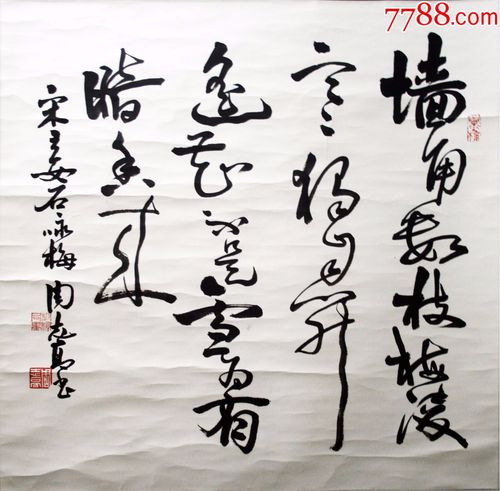 7788.com
墙角数枝梅凌
寒独自开
遥知不是雪为有
暗香来
宋王安石咏梅周志高书